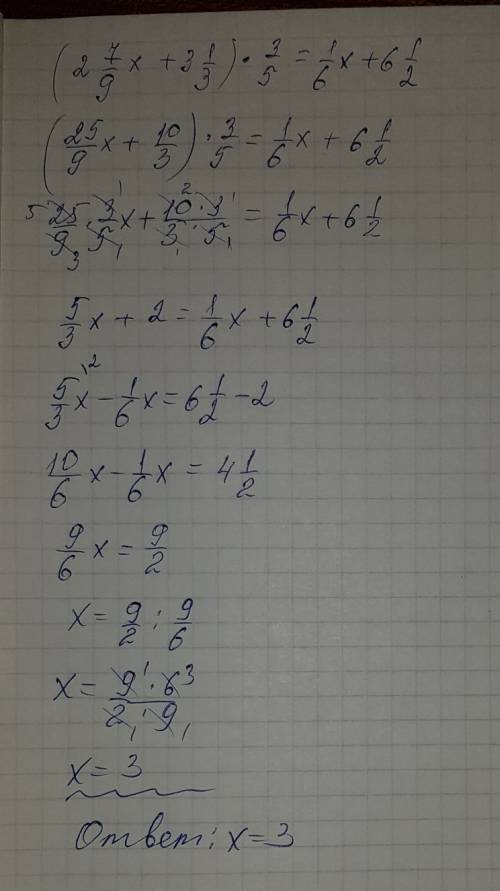 (2 7/9 x + 3 1/3) · 3/5 = 1/6 x + 6 1/2
(25/9 x + 10/3) · 3/5 = 1/6 x + 6 1/2
5 25/9 3 · 3 1/5 1 x + 10 2 · 3 1/3 1 · 5 1 = 1/6 x + 6 1/2
5/3 x + 2 = 1/6 x + 6 1/2
5/3 \2 x − 1/6 x = 6 1/2 − 2
10/6 x − 1/6 x = 4 1/2
9/6 x = 9/2
x = 9/2 : 9/6
x = 9 1 · 6 3/2 1 · 9 1
x = 3
Ответ: x = 3